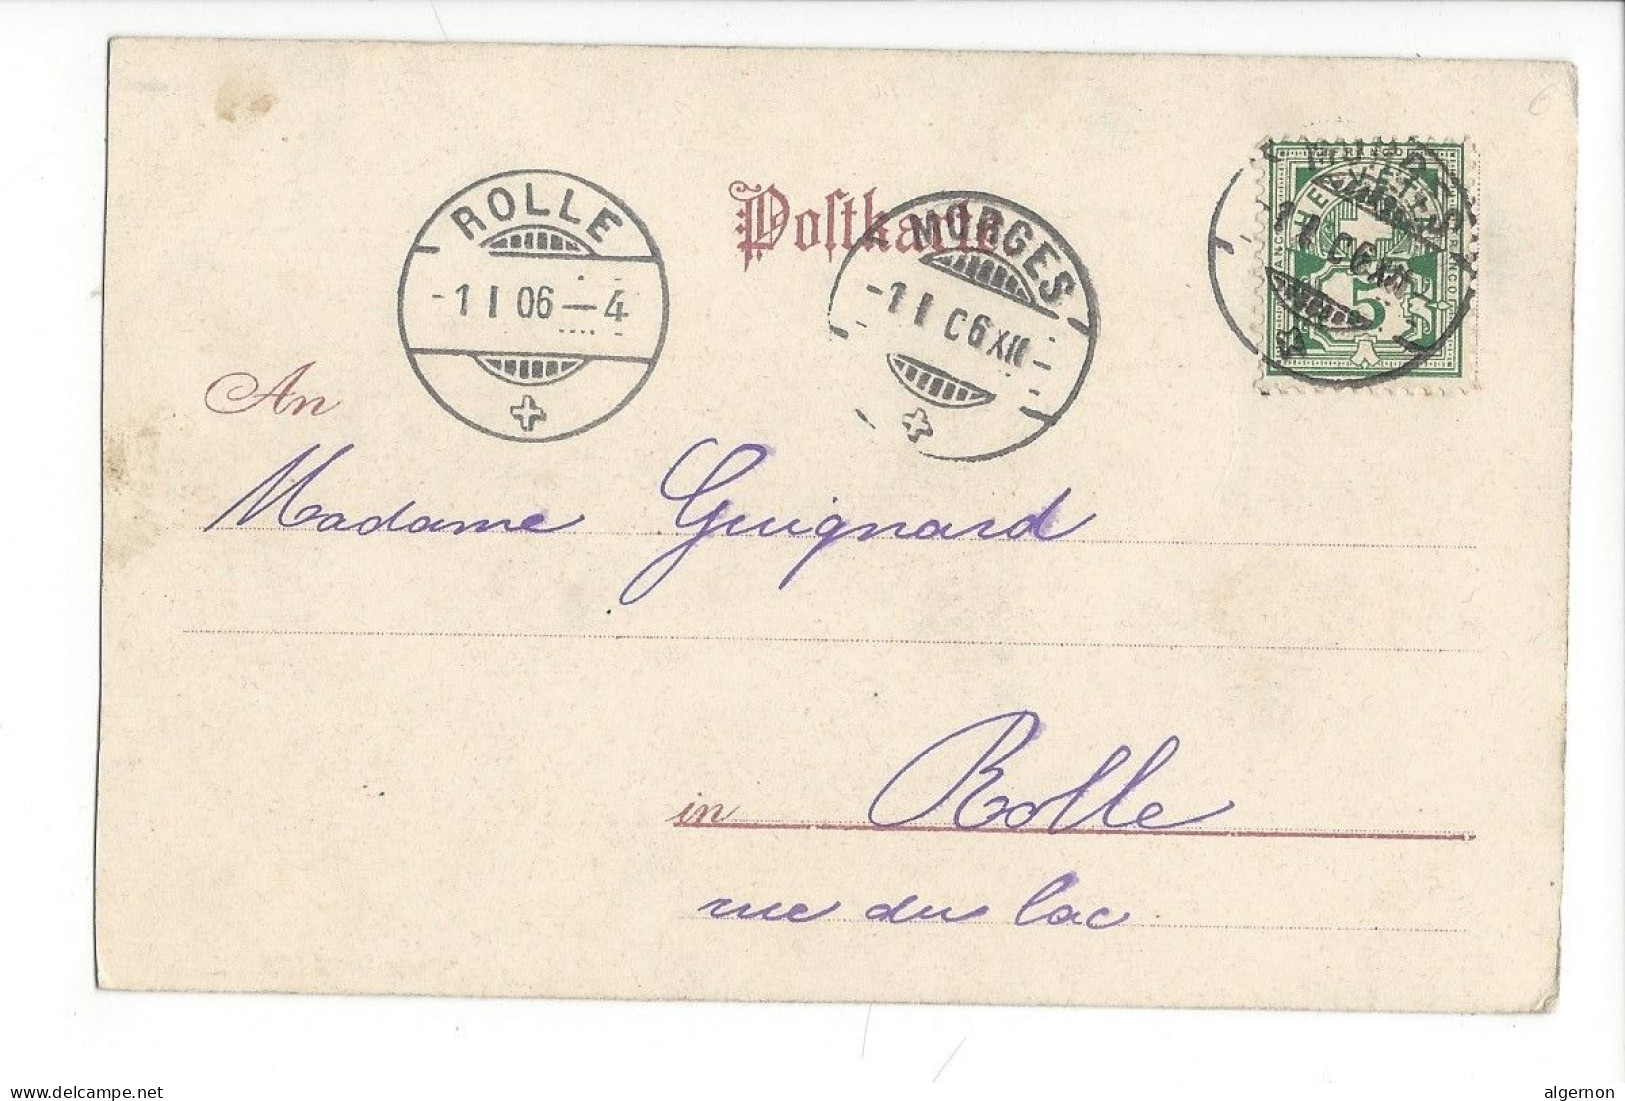 Postkarte
ROLLE
-1 I 06 - 4
MORGES
-1 I 06 XII -
FRANCO
HELVETIA
FRANCO
5
-1 I 06 XII -
An
Madame Guignard
in Rolle
rue du lac
6
delcampe.net
algernon